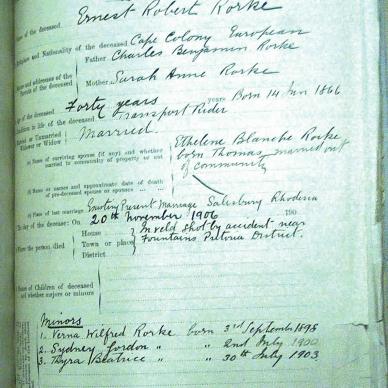 of the deceased Ernest Robert Rorke
and Nationality of the deceased Cape Colony European
Names and addresses of the Parents of the deceased
Father Charles Benjamin Rorke
Mother Sarah Anne Rorke
Age of the deceased Forty years years Born 14 Jan 1866
Condition in life of the deceased Transport Rider
Married or Unmarried
Widower or Widow Married
(a) Name of surviving spouse (if any) and whether married in community of property or not
Ethelene Blanche Rorke
born Thomas, married out
of community
(b) Name or names and approximate date of death of pre-deceased spouse or spouses
(c) Place of last marriage Existing Present Marriage Salisbury Rhodesia
The day of the decease: On 20th November 1906 190
Where the person died
House In veld shot by accident near
Town or place Fountains Pretoria District.
District
Names of Children of deceased and whether majors or minors
Minors
1. Verna Wilfred Rorke born 3rd September 1898
2. Sydney Gordon " " 2nd July 1900
3. Thyra Beatrice " " 30th July 1903